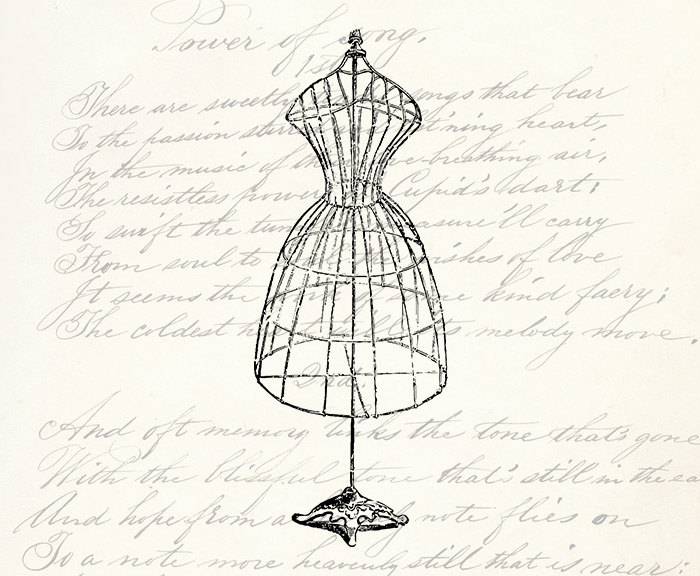 Power of Song.
1st
There are sweetly songs that bear
To the passion heart,
In the music of breathing air,
The resistless power Cupid's dart:
So swift the pleasure'll carry
From soul to wishes of love
It seems the kind faery;
The coldest melody move.
2nd.
And oft memory links the tone that's gone
With the blissful tone that's still in the ea
And hope from a note flies on
To a note more heavenly still that is near: